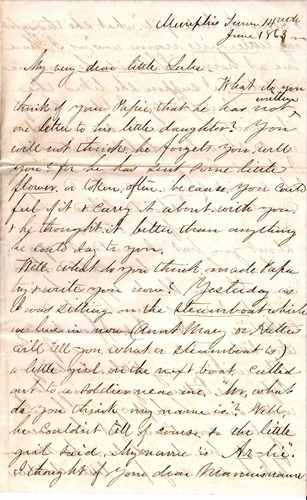 Memphis Tenn 14
June 1863
My very dear little Lulu
What do you
think of your Papa, that he has not written
one letter to his little daughter? You
will not think, he forgets you, will
you? for he has sent some little
flower, or token, often, because you could
feel of it & carry it about with you,
& he thought it better than anything
he could say to you.
Well, what do you think made Papa
try & write you now? Yesterday as
I was sitting on the steamboat which
we live in now (Aunt Mary or
will tell you what a steamboat is)
a little girl, on the next boat, called
out to a soldier near me, "Mr, what
do you think my name is"? Well,
he couldn't tell of course, so the little
girl said, My name is "Ar-lie".
I thought of your dear Mamma's name